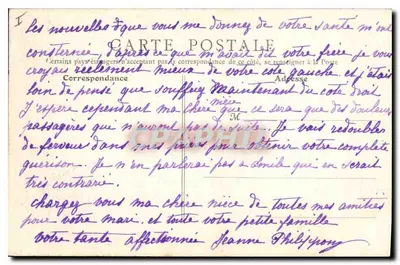 I
Les nouvelles que vous me donnez de votre santé m'ont
consternée d'après ce que m'avait dit votre frère je vous
CARTE POSTALE
croyais réellement mieux de votre côté gauche et j'étais
Correspondance Adresse
loin de penser que souffriez maintenant du côté droit
J'espère cependant ma chère nièce que ce sera que des douleurs
M
passagères qui n'auront pas de suite. Je vais redoubler
de ferveur dans mes prières pour obtenir votre complète
guérison. Je n'en parlerai pas a qui en serait
très contrarié.
Chargez vous ma chère nièce de toutes mes amitiés
pour votre mari et toute votre petite famille
Votre tante affectionnée Jeanne Philippon